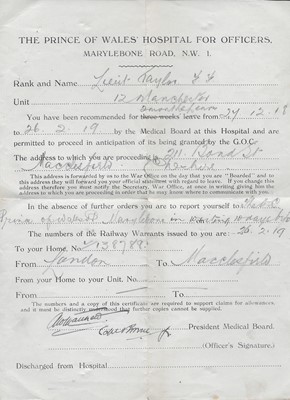 THE PRINCE OF WALES' HOSPITAL FOR OFFICERS,
MARYLEBONE ROAD, N.W. 1.
Rank and Name Lieut Taylor
Unit 12 Manchester
You have been recommended for three weeks' leave from 27 12 18
to 26. 2. 19 by the Medical Board at this Hospital and are
permitted to proceed in anticipation of its being granted by the G.O.C.
The address to which you are proceeding is Bond St
Macclesfield
This address is forwarded by us to the War Office on the day that you are "Boarded" and to
this address they will forward you your official direction with regard to leave. If you change this
address therefore you must notify the Secretary, War Office, at once in writing giving him the
address to which you are proceeding in order that he may know where to communicate with you.
In the absence of further orders you are to report yourself to
Prince of Wales H. Marylebone in writing
The numbers of the Railway Warrants issued to you are:
To your Home, No.
From London To Macclesfield
From your Home to your Unit. No.
From To
The numbers and a copy of this certificate are required to support claims for allowances
and it must be distinctly understood that further copies cannot be supplied.
President Medical Board.
(Officer's Signature.)
Discharged from Hospital